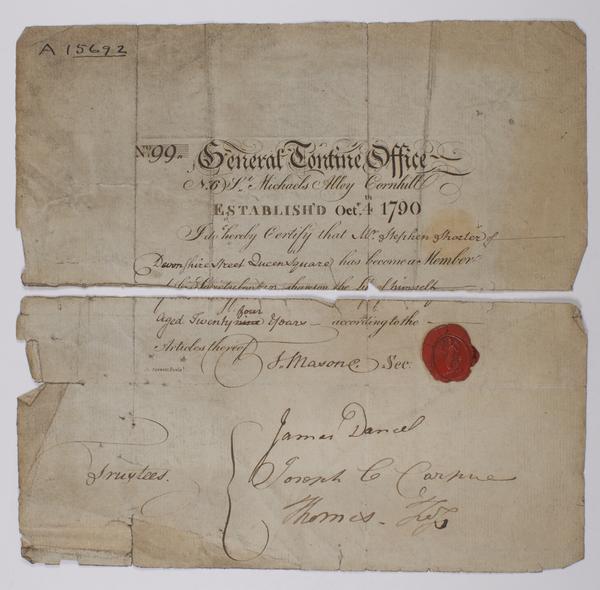 A 15692
No. 99. General Tontine Office
No. 6 St. Michaels Alley Cornhill
ESTABLISH'D Octr. 4th 1790
I do hereby Certify that Mr. Stephen Shorter of
Devonshire Street Queen Square has become a Member
himself
four
Aged Twenty nine Years according to the
Articles thereof
J. Mason Sec.
James Dancel
Trustees.
Joseph C Carpue
Thomas